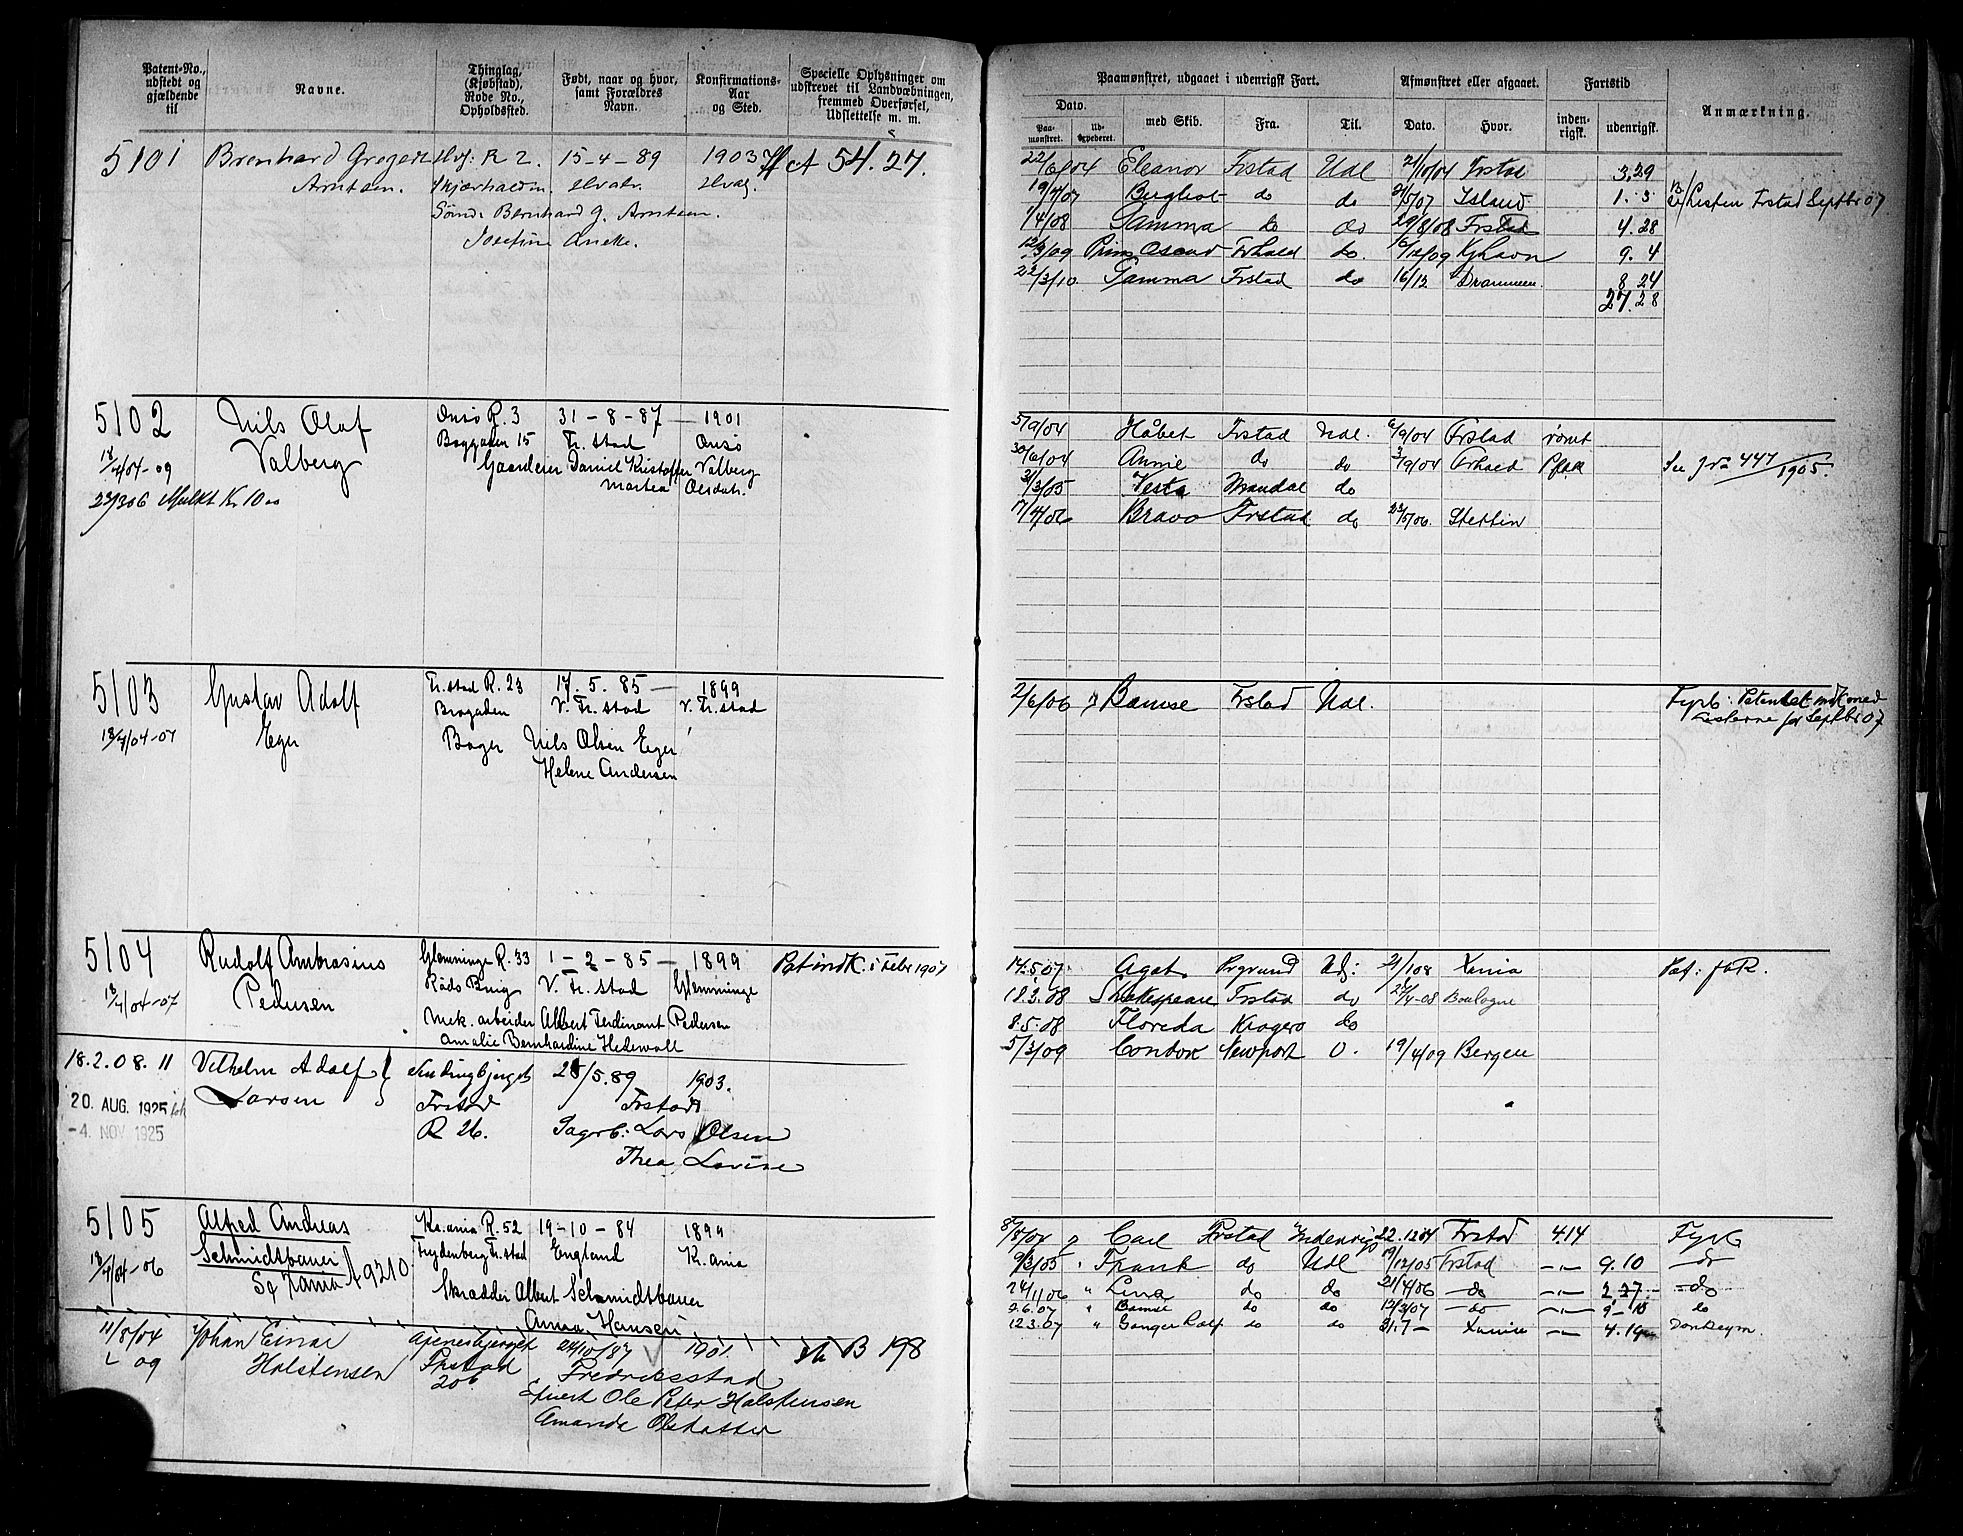 Patent-No., udstedt og gjældende til
Navne.
Thinglag, (Kjøbstad), Rode No., Opholdssted.
Født, naar og hvor, samt Forældres Navn.
Konfirmations-Aar og Sted.
Specielle Oplysninger om udskrevet til Landvæbningen, fremmed Overførsel, Udslettelse m. m.
5101 Bernhard Gregers Hval. R 2. 15-4-89 1903 A 54.27.
Arntsen. Skjærhalden. Hvaler. Hval.
Sønd: Bernhard G. Arntsen.
Josefine
5102 Nils Olaf Onsø R. 3 31-8-87 — 1901
Valberg Baggaden 15 Fr. stad Onsø
18/4/04-09 Gaardeier Daniel Kristoffer Valberg
Martea Olsdatr.
23/3 06 Mulkt Kr 10 00
5103 Gustav Adolf Fr. stad R. 23 17. 5. 85 — 1899
18/4/04-07 Eger Brogaden V. Fr. stad V. Fr. stad
Bager Nils Olsen Eger
Helene Andersen
5104 Rudolf Ambrosius Glemminge R. 33 1-2-85 — 1899 Pat indk. i Febr 1907
18/4/04-07 Pedersen Råds Bruig V. Fr. stad Glemminge
Mek. arbeider Albert Ferdinant Pedersen
Amalie Bernhardine Hedewall
18.2.08. 11 Vilhelm Adolf 5.89 1903.
20. AUG. 1925 Larsen Frstad Frstad
-4. NOV 1925 R 26. Sagarb: Lars Olsen
Thea Lovise
5105 Alfred Andreas Kr.ania R. 52 19-10-84 1899
18/4/04-06 Schmidtbauer Frydenberg Fr. stad England K. ania
A 9210
Skrædder Albert Schmidtbauer
Anna Hansen
11/8/04 Johan Einar 24/10/87 1901. B 198
09 Holstensen Frstad Fredriksstad
206 Ole Peter Holstensen
Amanda Olsdatter
Paamønstret, udgaaet i udenrigsk Fart.
Afmønstret eller afgaaet.
Fartstid
Anmærkning.
Dato.
Paa-mønstret.
Ud-expederet.
med Skib.
Fra.
Til.
Dato.
Hvor.
inden-rigsk.
udenrigsk.
22/6/04 Eleanor Frstad Udl 21/10/04 Frstad 3.29
19/4/07 do do Island 1. 3 Listen Frstad Septbr 07
1/4/08 Gamma do do 29/8/08 Frstad 4.28
12/3/09 Frhald do. 16/12/09 Kjhavn 9. 4
22/3/10. Gamma Frstad do 16/12 Drammen. 8 24
27.28
5/9/04 Håbet Frstad Udl. 6/9/04 Frstad rømt
30/6/04 Annie do do 3/9/04 Frhald Se 447/1905.
31/3/05 Vesta Mandal do
17/4/06 Bravo Frstad do 23/5/06. Stettin
2/6/06 Bamse Frstad Udl. Fyrb: Patentet indk med
Listerne for Septbr 07
14.5.07. Agat Prgrund Udl: 21/1 08 Xania Pat: fork.
18.3.08 Shakespeare Frstad do 25/4-08 Boulogne
8.5.08 Floreda Kragerø do
5/3/09 Condor Newport U. 19/4/09 Bergen
8/8/04 Carl Frstad Indenrigs 22.12 04 Frstad 4.14 Fyrb
9/3/05 Frank do Udl 19/12/05 Frstad -"- 9.10 do
24/1 06 " Lina do do 21/4/06 do -"- 2.27 do
2.6.07 " Bamse do do 12/3/07 do -"- 9-10 do
12.3.07 " Ganger Rolf do do 31.7 - Xania -"- 4.19 Donkeym.